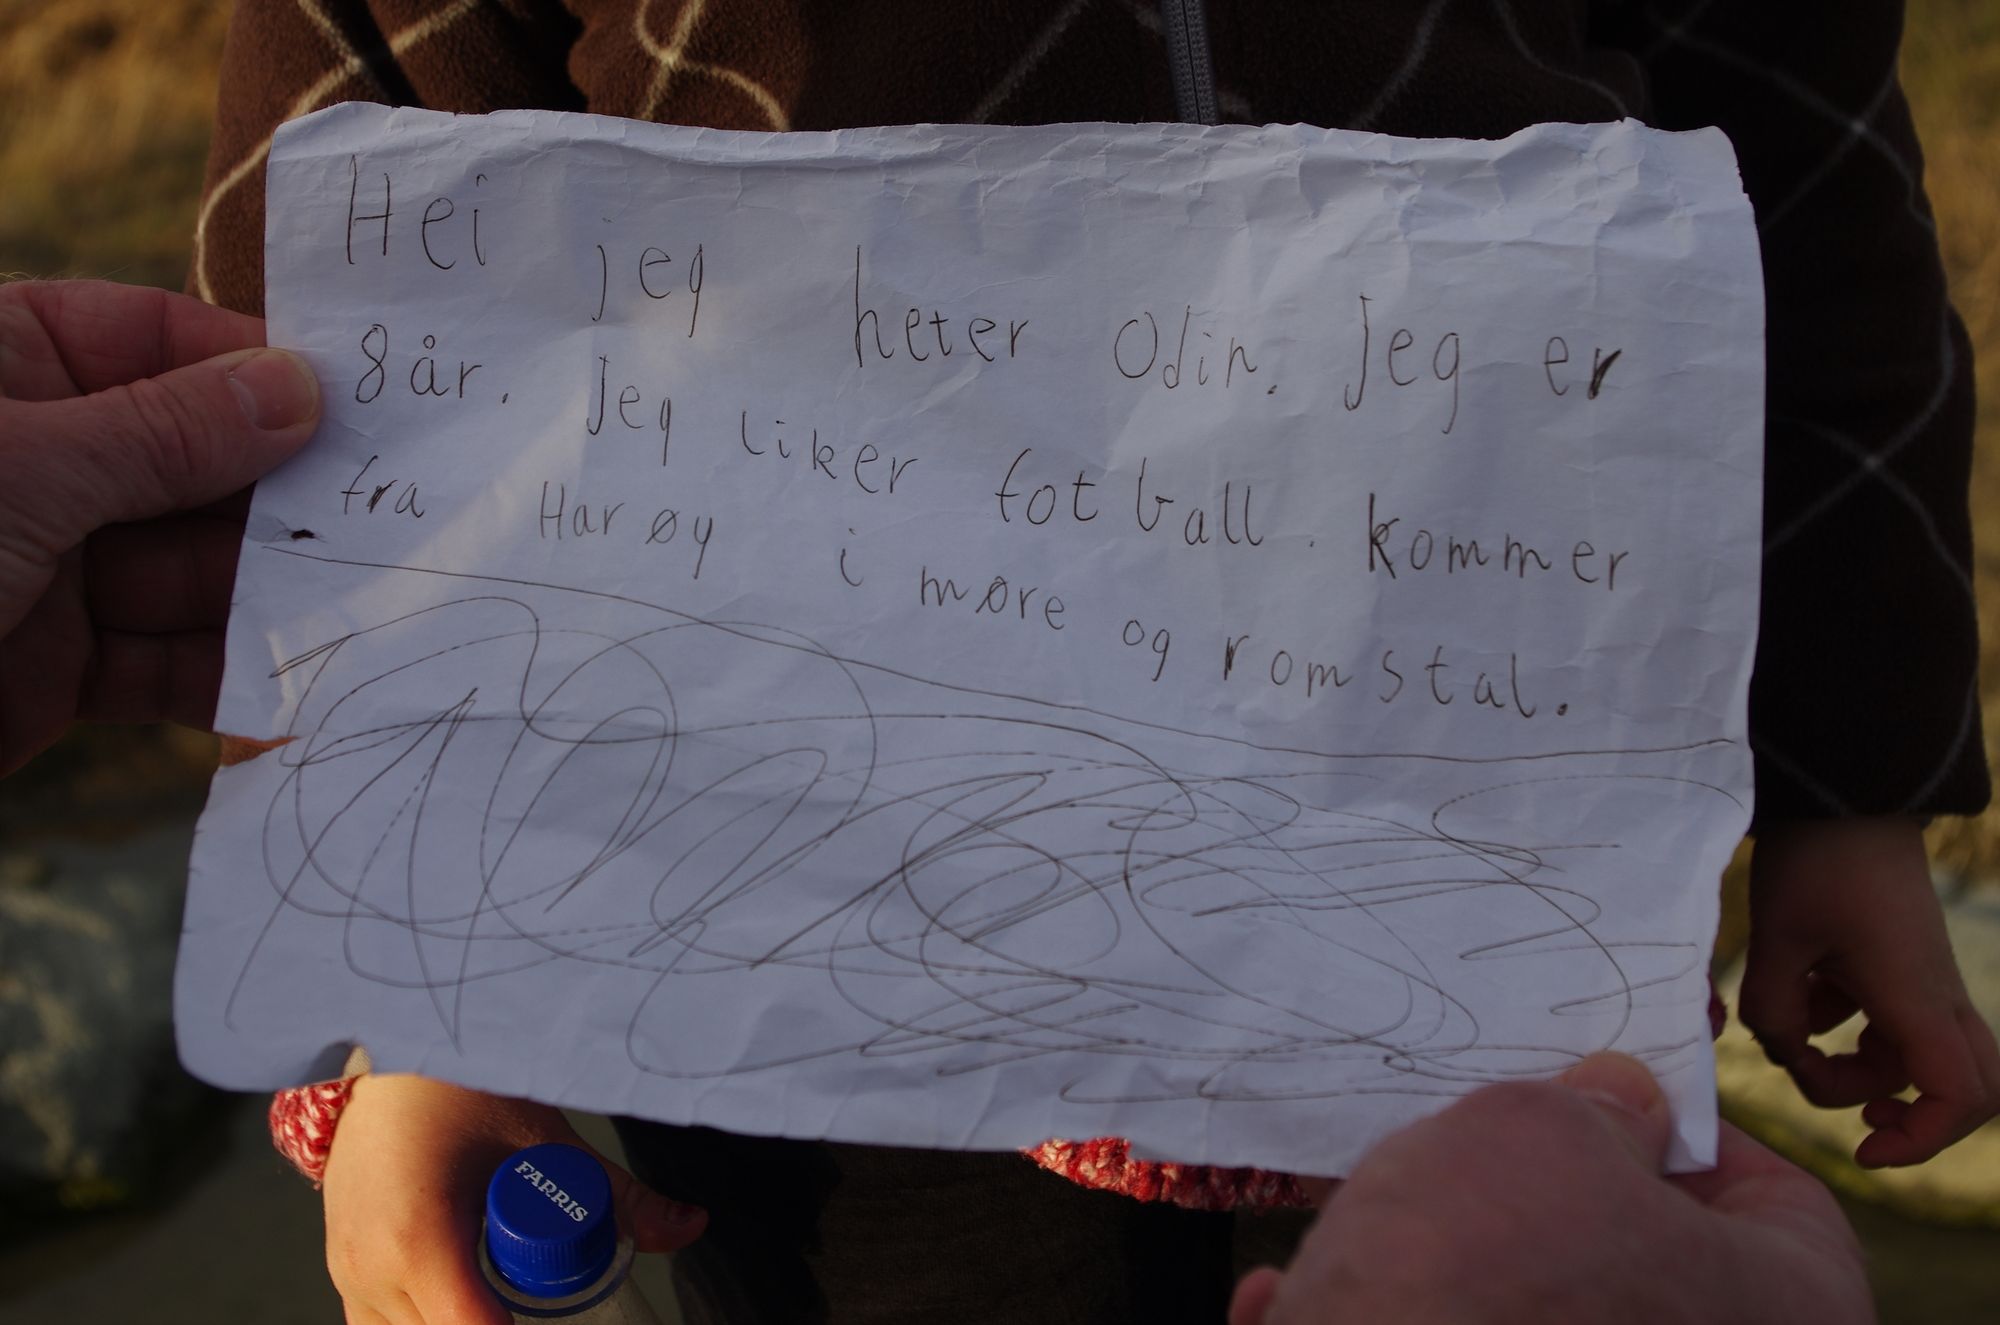 Hei jeg heter Odin. Jeg er
8 år. Jeg liker fotball. kommer
fra Harøy i møre og romstal.
FARRIS